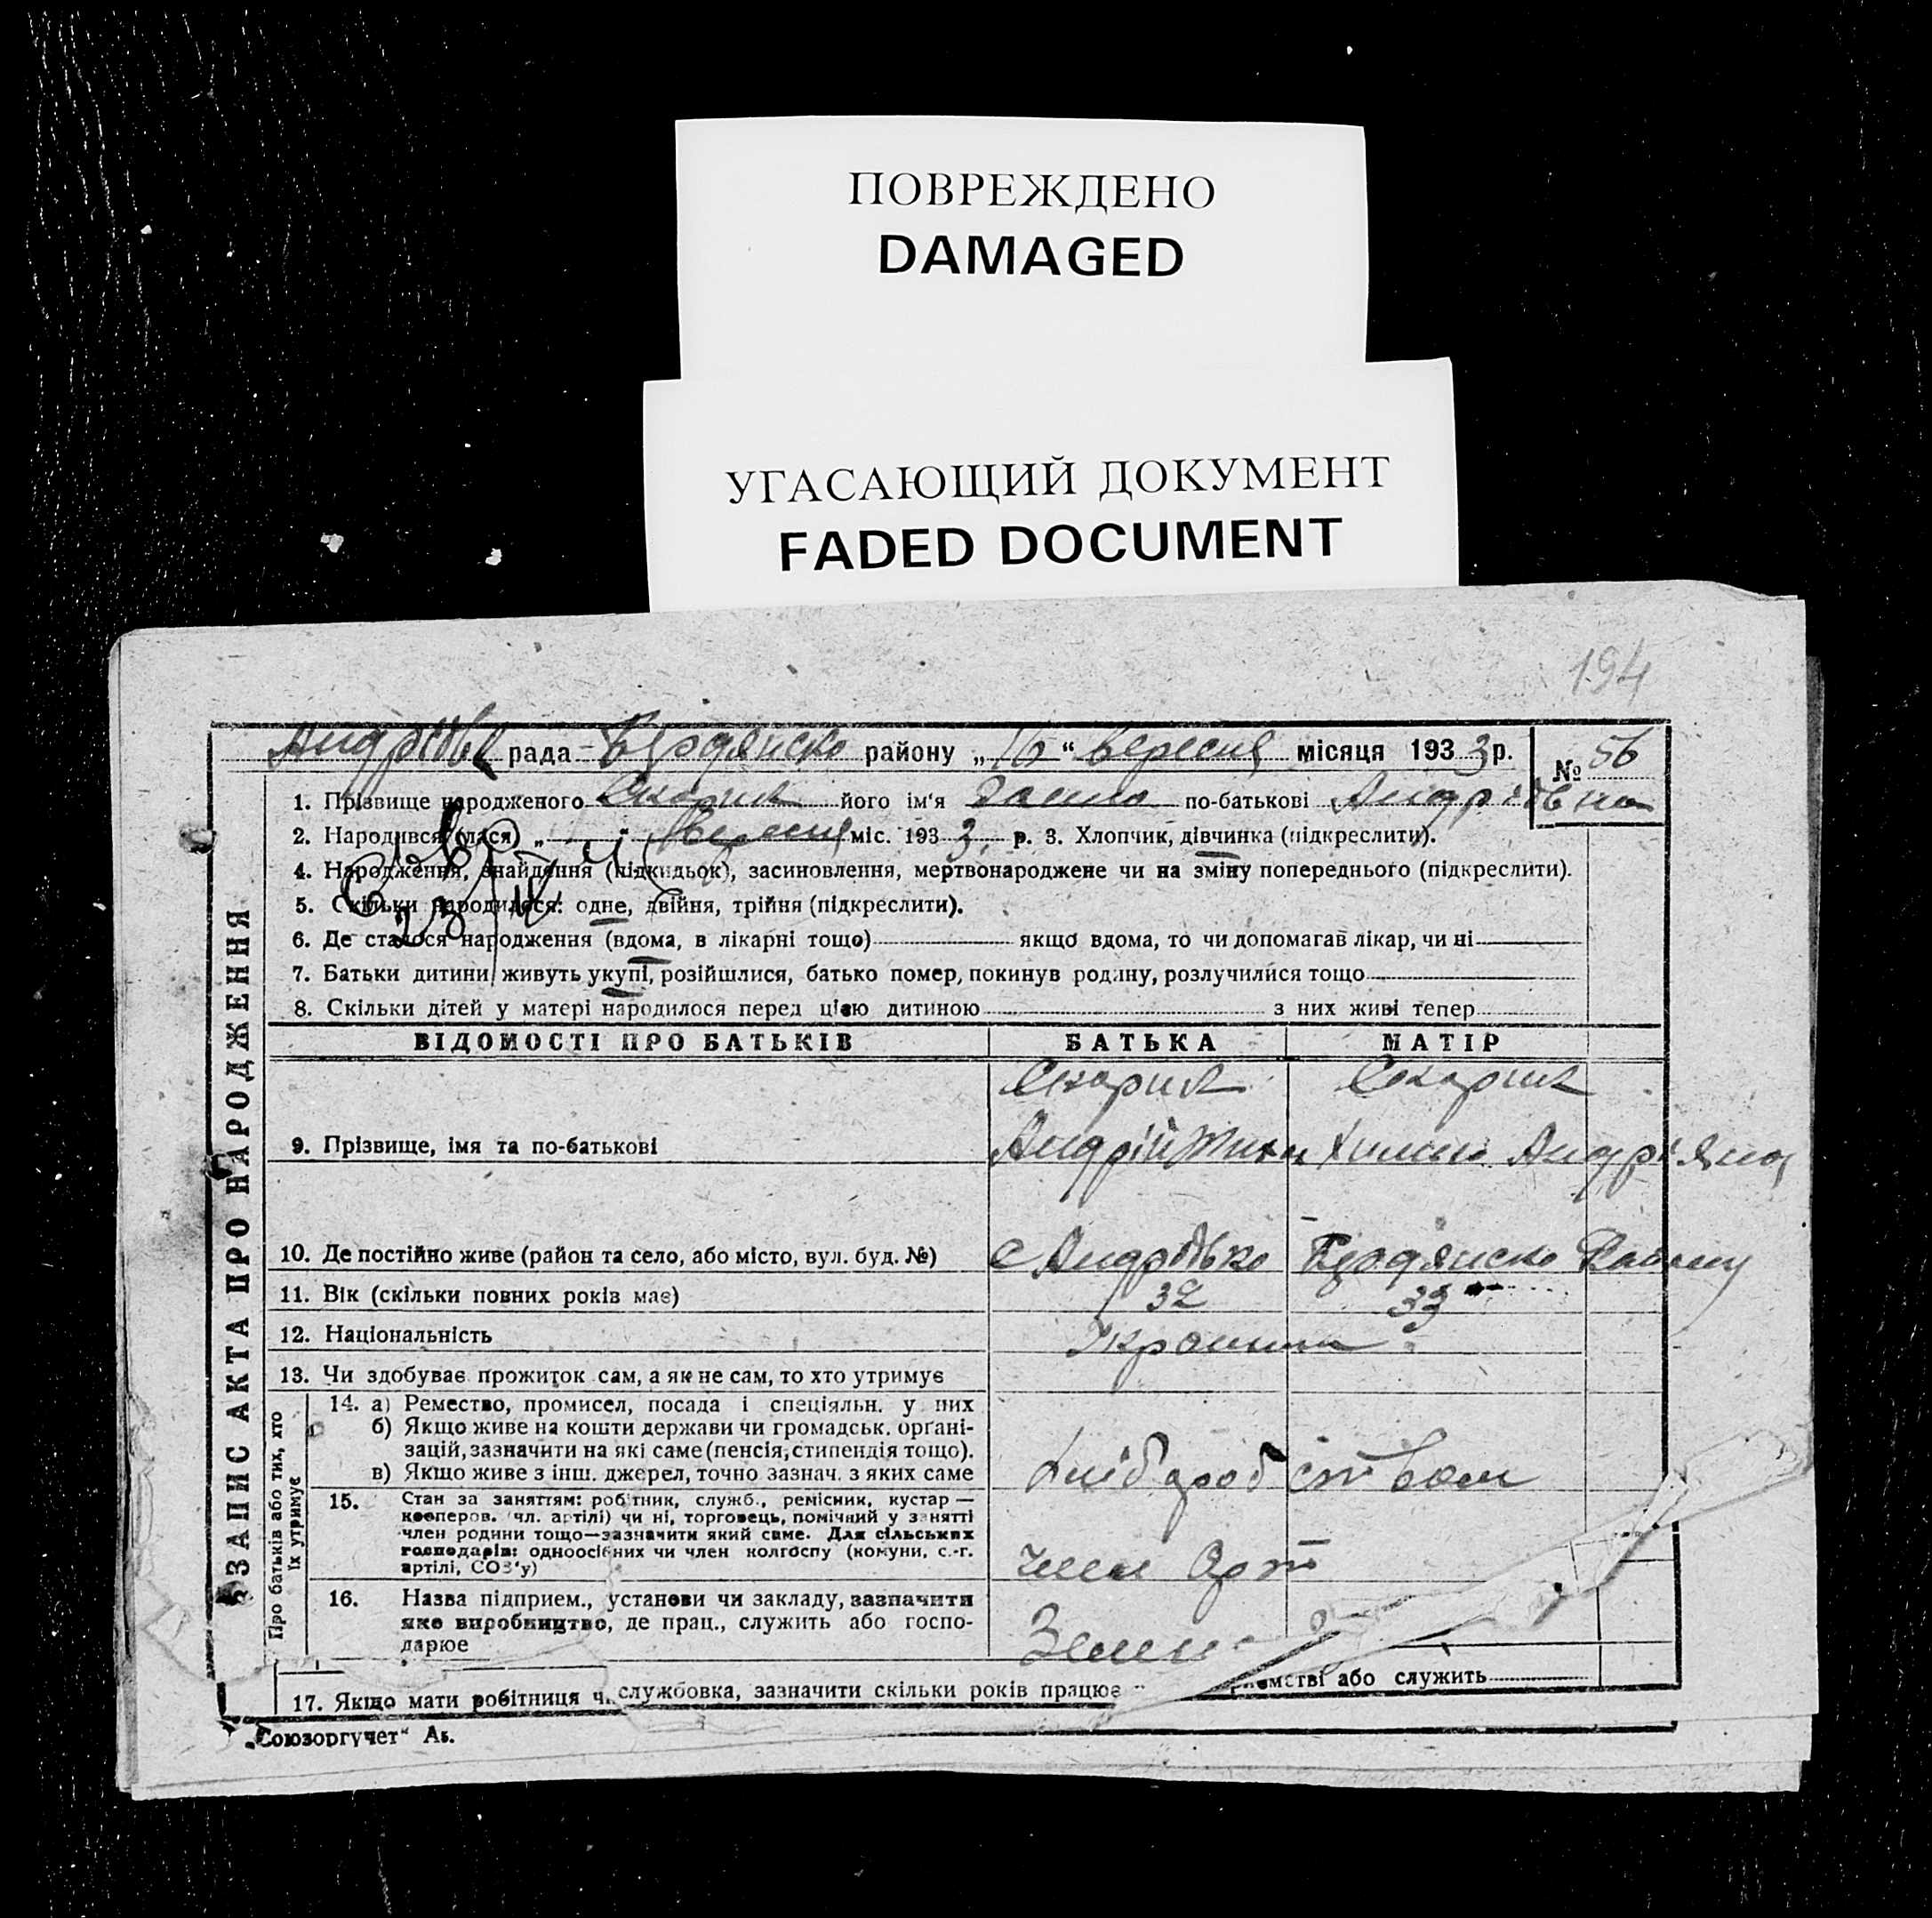 ПОВРЕЖДЕНО
DAMAGED
УГАСАЮЩИЙ ДОКУМЕНТ
FADED DOCUMENT
194
рада Бердянско району „16“ вересня місяця 1933 р. № 56
1. Прізвище народженого його ім'я по-батькові Андріівна
2. Народився (лася) „ “ вересня міс. 1933 р. 3. Хлопчик, дівчинка (підкреслити).
4. Народження, знайдення (підкидьок), засиновлення, мертвонароджене чи на зміну попереднього (підкреслити).
5. Скільки народилося: одне, двійня, трійня (підкреслити).
6. Де сталося народження (вдома, в лікарні тощо) якщо вдома, то чи допомагав лікар, чи ні
7. Батьки дитини живуть укупі, розійшлися, батько помер, покинув родину, розлучилися тощо
8. Скільки дітей у матері народилося перед цією дитиною з них живі тепер
ЗАПИС АКТА ПРО НАРОДЖЕННЯ
ВІДОМОСТІ ПРО БАТЬКІВ БАТЬКА МАТІР
Скорик Скорик
9. Прізвище, імя та по-батькові Андрій
10. Де постійно живе (район та село, або місто, вул. буд. №) с Бердянско Району
11. Вік (скільки повних років має) 32 33
12. Національність
13. Чи здобуває прожиток сам, а як не сам, то хто утримує
Про батьків або тих, хто
їх утримує
14. а) Ремество, промисел, посада і спеціяльн. у них
б) Якщо живе на кошти держави чи громадськ. орґані-
зацій, зазначити на які саме (пенсія, стипендія тощо).
в) Якщо живе з інш. джерел, точно зазнач. з яких саме
15. Стан за заняттям: робітник, служб., ремісник, кустар —
кооперов. (чл. артілі) чи ні, торговець, помічний у занятті
член родини тощо—зазначити який саме. Для сільських
господарів: одноосібних чи член колгоспу (комуни, с.-г.
артілі, СОЗ'у) член Арт
16. Назва підприєм., установи чи закладу, зазначити
яке виробництво, де прац., служить або госпо-
дарює
17. Якщо мати робітниця чи службовка, зазначити скільки років працює або служить
„Союзоргучет“